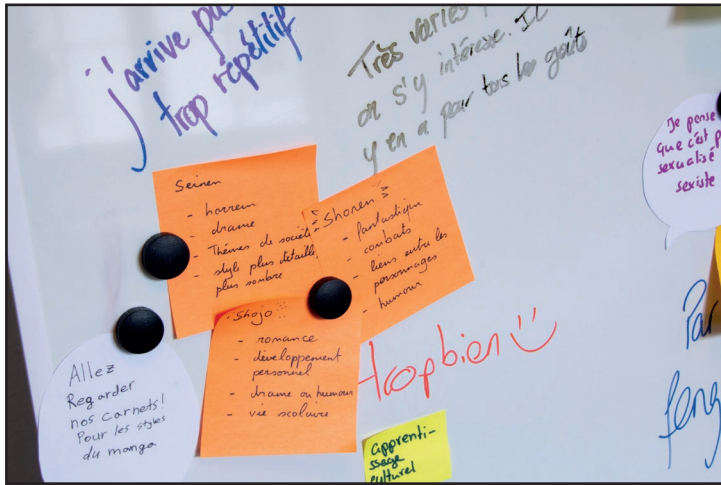 j'arrive pas
trop répétitif
Très variés
on s'y intéresse. Il
y en a pour tous les goûts
Je pense
que c'est
sexualisé
sexiste
Seinen
- horreur
- drame
- Thèmes de société
- style plus détaillé
plus sombre
Shonen
- fantastique
- combats
- liens entre les
personnages
- humour
- Shojo
- romance
- développement
personnel
- drame ou humour
- vie scolaire
trop bien
Allez
Regarder
nos carnets!
Pour les styles
du manga
apprenti-
ssage
culturel
Par
feng